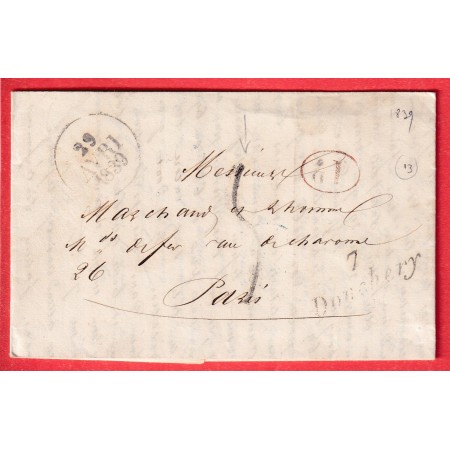 1839
13
29
1839
Messieurs
Marchand et
Mds de fer rue de charonne
26
Paris
7
Donchery